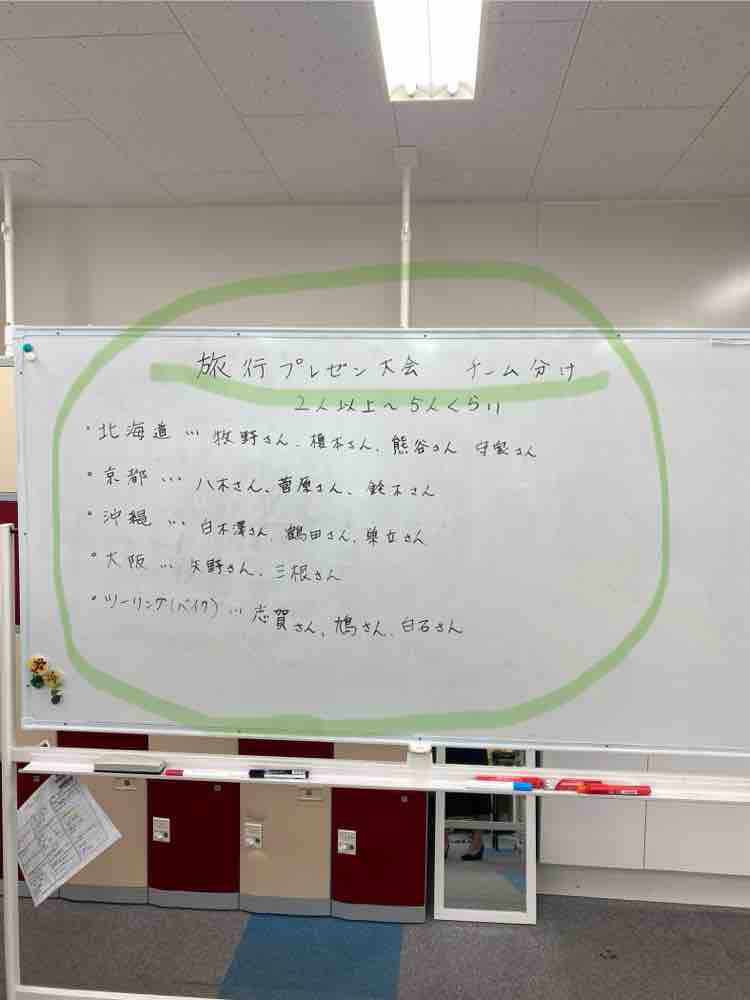 旅行プレゼン大会 チーム分け
2人以上~5人くらい
・北海道 … 牧野さん、榎本さん、熊谷さん 守家さん
・京都 … 八木さん、菅原さん、鈴木さん
・沖縄 … 白木澤さん、鶴田さん、巣立さん
・大阪 … 矢野さん、三根さん
・ツーリング(バイク) … 志賀さん、鳩さん、白石さん